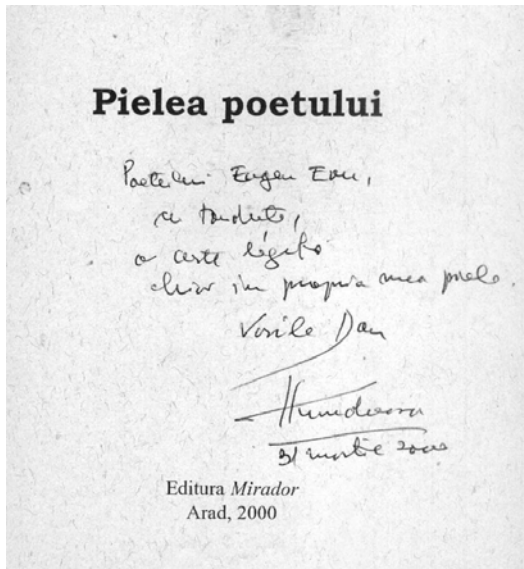 Pielea poetului
Poetului Eugen Evu,
cu
o carte legată
chiar în propria mea piele.
Vasile Dan
Hunedoara
31 martie 2000
Editura Mirador
Arad, 2000